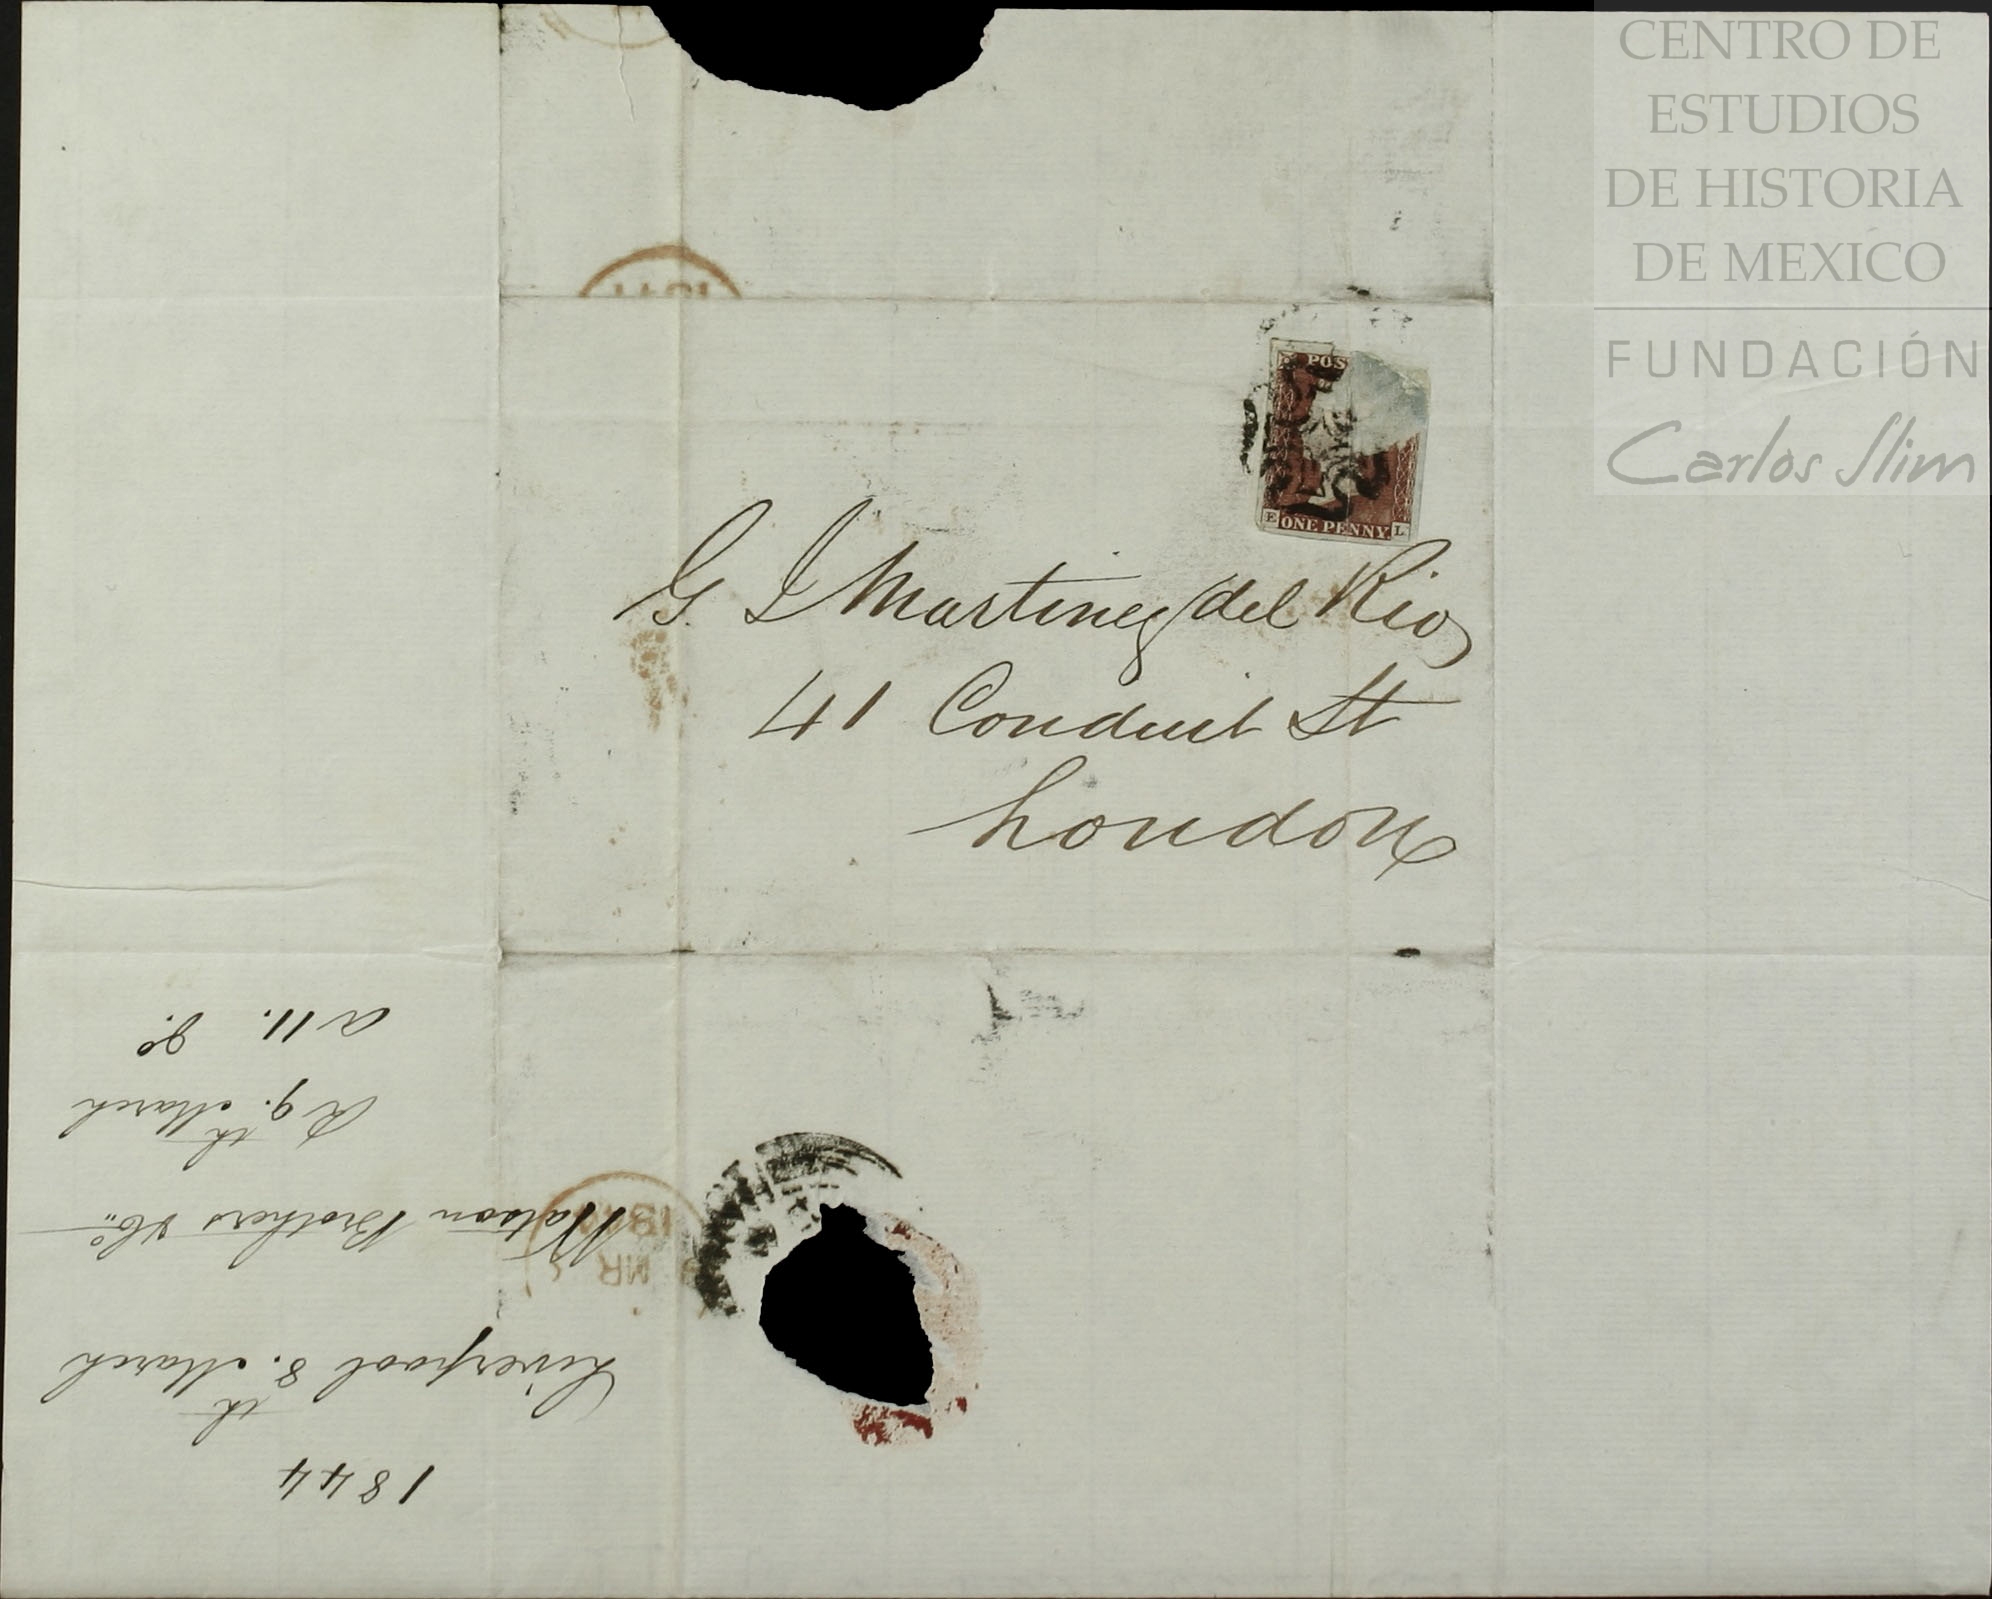 CENTRO DE
ESTUDIOS
DE HISTORIA
DE MEXICO
FUNDACIÓN
Carlos Slim
POS
E ONE PENNY. L
G. I Martinez del Rio
41 Conduit St
London
1844
Liverpool 8.th March
Watson Brothers & Co
R 9.th March
a 11. do.
MR
184